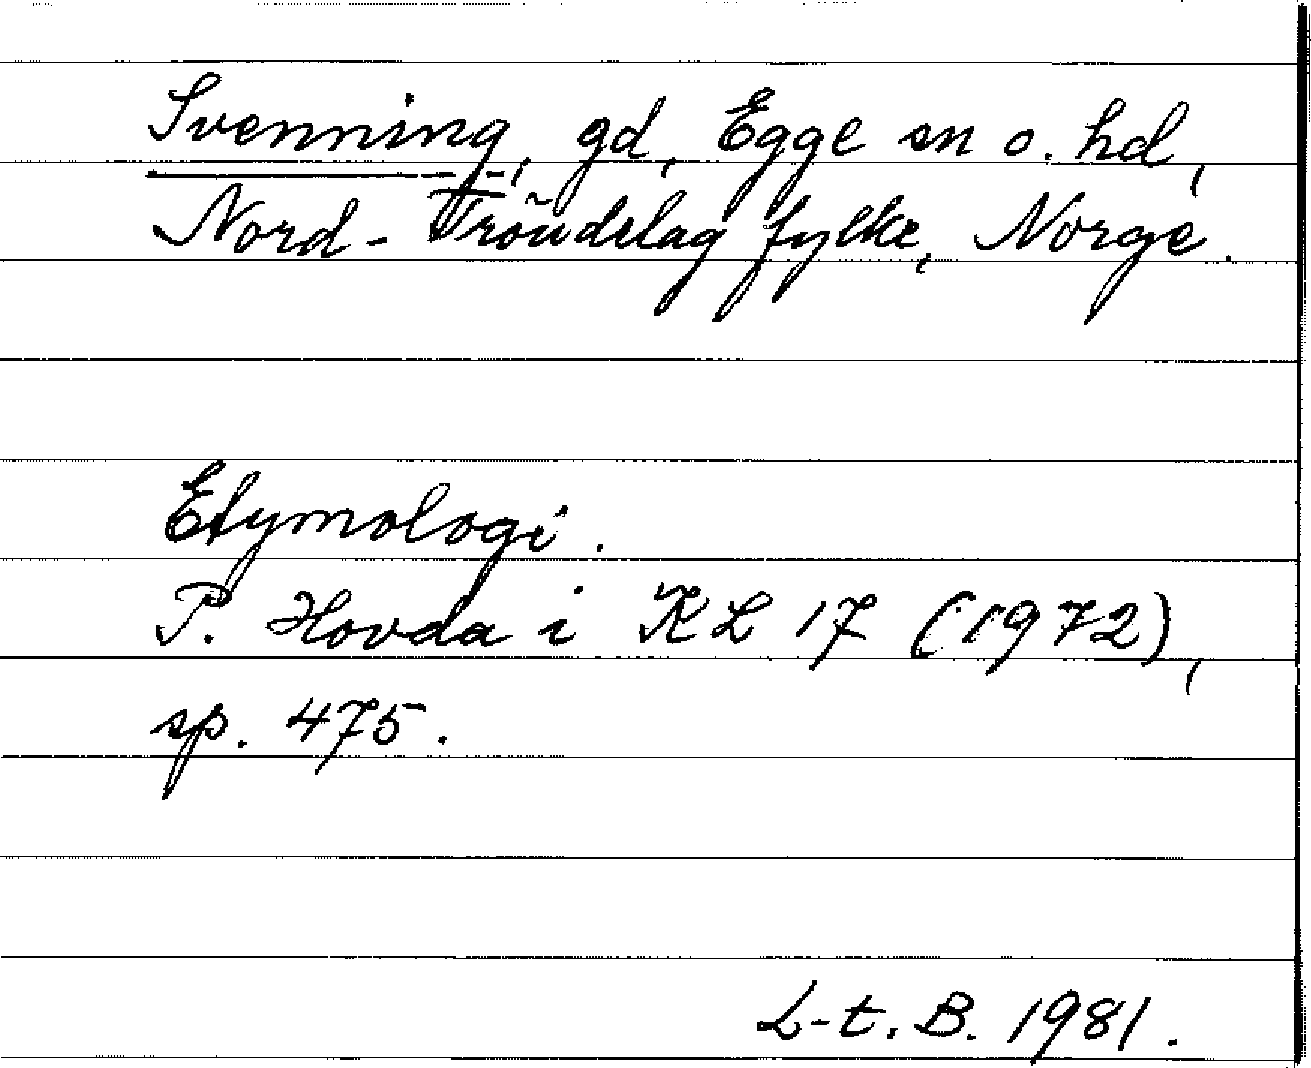 Svenning, gd, Egge sn o. hd,
Nord-Tröndelag fylke, Norge.
Etymologi.
P. Hovda i KL 17 (1972),
sp. 475.
L-t. B. 1981.